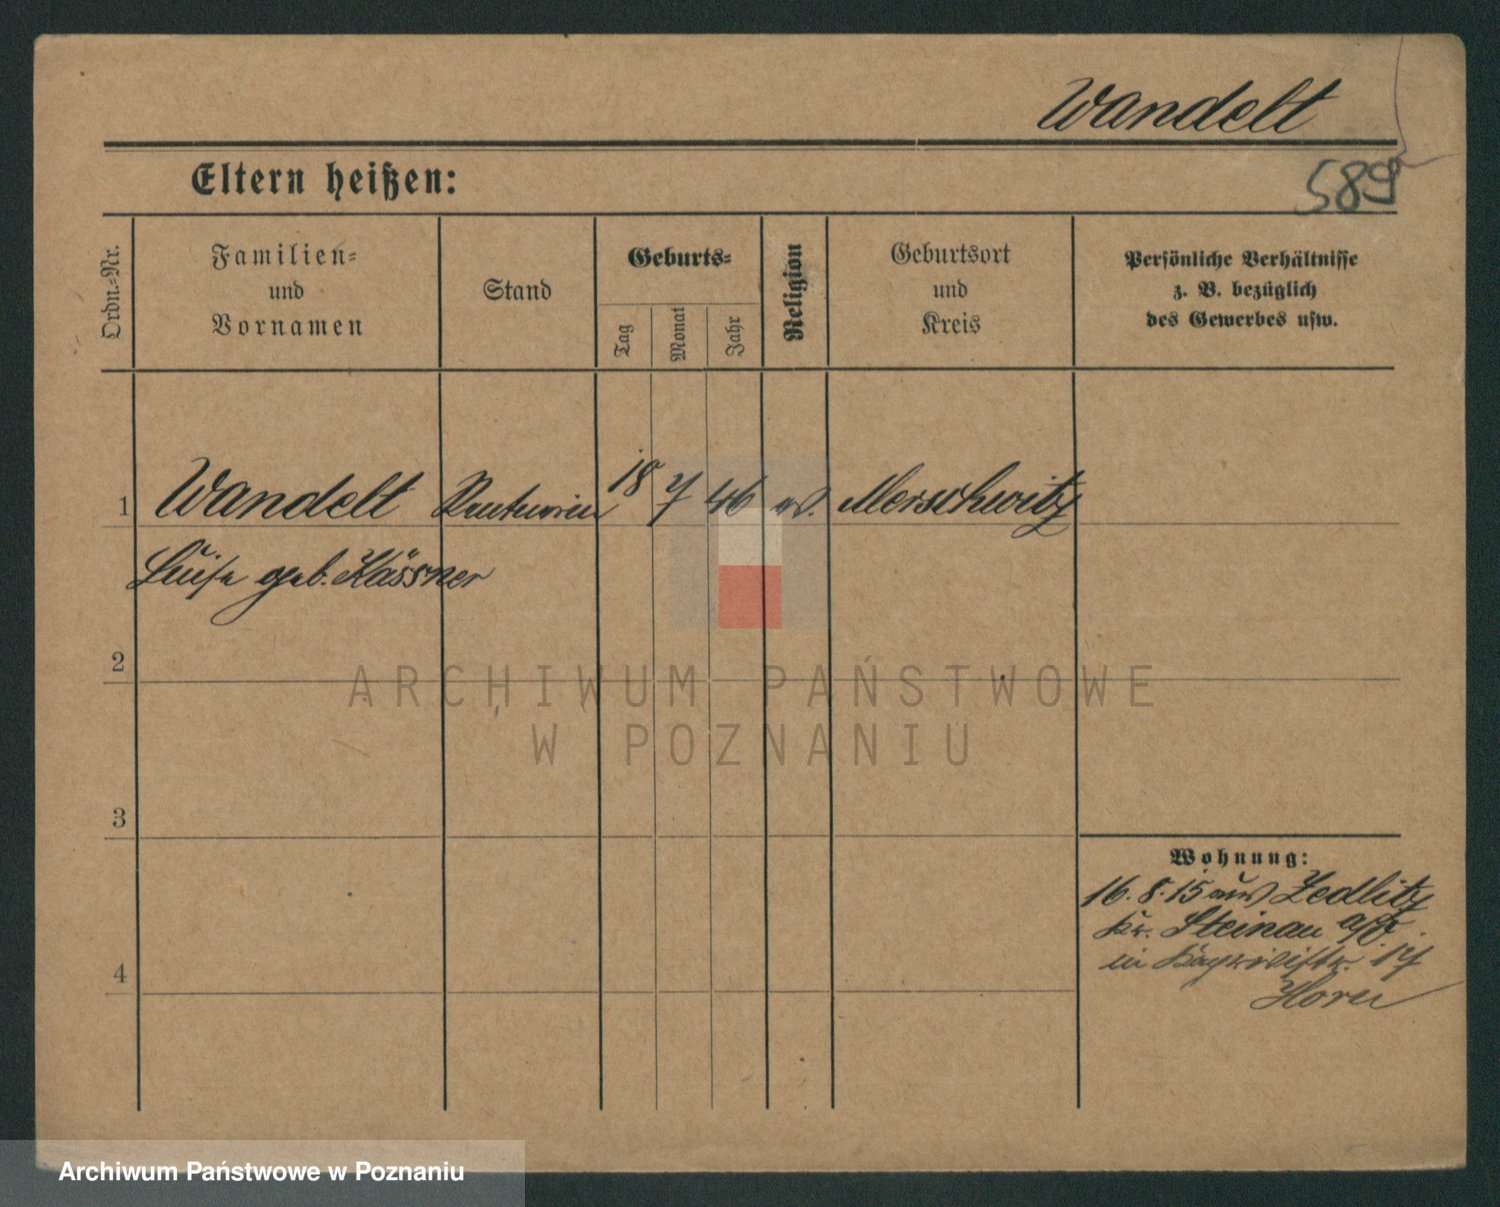 Wandelt
589
Eltern heißen:
Ordn.-Nr.
Familien-
und
Vornamen
Stand
Geburts-
Tag
Monat
Jahr
Religion
Geburtsort
und
Kreis
Persönliche Verhältnisse
z. B. bezüglich
des Gewerbes usw.
1 Wandelt Rentnerin 18 7 46 ev. Merschwitz
Luise geb. Kässner
2
3
4
ARCHIWUM PAŃSTWOWE
W POZNANIU
Wohnung:
16. 8. 15 aus Zedlitz
Kr. Steinau a/O.
in 17
Horn
Archiwum Państwowe w Poznaniu